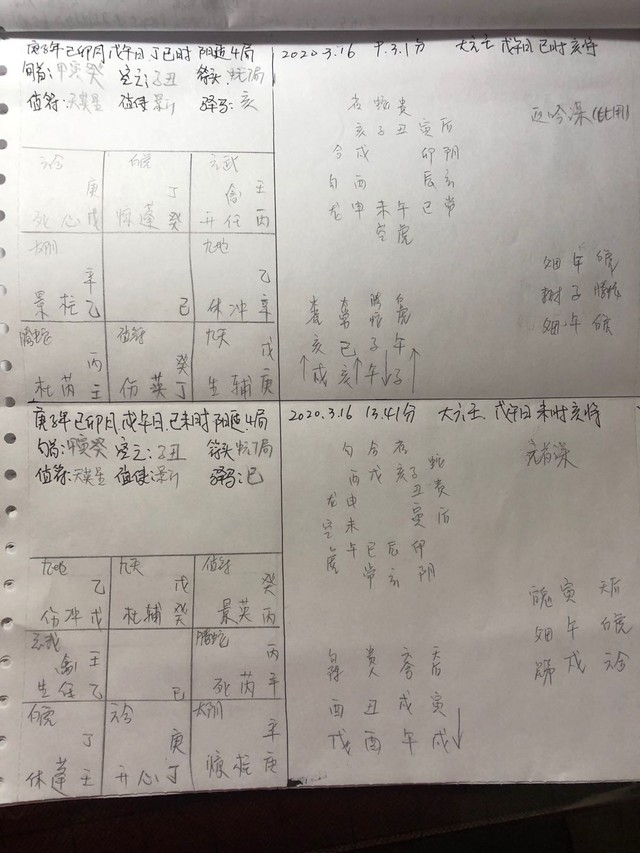 庚子年己卯月戊午日丁巳时 阳遁4局
旬首:甲寅癸 空亡:子丑
值符:天英星 值使:景门 驿马:亥
六合 白虎 玄武
庚 丁 禽 壬
死 心 戊 惊 蓬 癸 开 任 丙
太阴 九地
辛 乙
景 柱 乙 己 休 冲 辛
腾蛇 值符 九天
丙 癸 戊
杜 芮 壬 伤 英 丁 生 辅 庚
2020.3.16 大六壬 戊午日 巳时亥将
返吟课
亥 子 丑 寅 后
合 戌 卯 阴
勾 酉 辰 玄
龙 申 未 午 巳 常
空 虎
午
子
午
亥 巳 子 午
戌 亥 午 子
庚子年己卯月戊午日己未时 阳遁4局
旬首:甲寅癸 空亡:子丑
值符:天英星 值使:景门 驿马:巳
九地 九天 值符
乙 戊 癸
伤 冲 戊 杜 辅 癸 景 英 丙
玄武 腾蛇
禽 壬 丙
生 任 乙 己 死 芮 辛
白虎 六合 太阴
丁 庚 辛
休 蓬 壬 开 心 丁 惊 柱 庚
2020.3.16 13.41分 大六壬 戊午日 未时亥将
元首课
勾 合
酉 戌 亥 子 蛇
龙 申 丑 贵
空 未 寅 后
虎 午 巳 辰 卯
常 玄 阴
寅 天后
午 白虎
戌 六合
贵人 六合 天后
酉 丑 戌 寅
戊 酉 午 戌